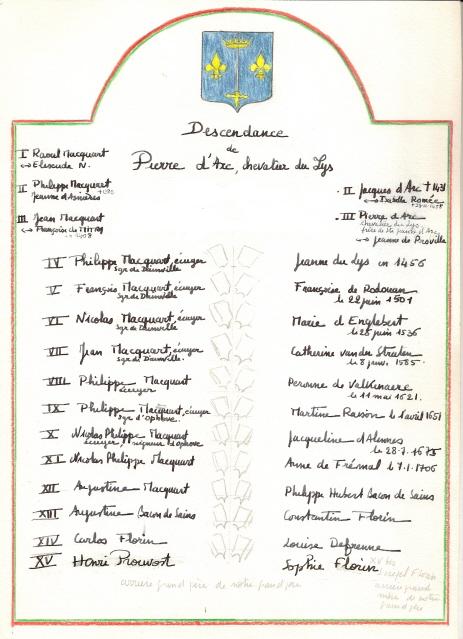 Descendance
de
Pierre d'Arc, chevalier du Lys
I Raoul Macquart
↔ Eliscude N.
II Philippe Macquart
Jeanne d'Asnières
III Jean Macquart
↔ Françoise de
II Jacques d'Arc † 1431
↔ Isabelle Romée
III Pierre d'Arc
chevalier du Lys
frère de Ste Jeanne d'Arc
↔ Jeanne de Proville
IV Philippe Macquart, écuyer Jeanne du Lys en 1456
Sgr de Dainville
V François Macquart, écuyer Françoise de Rodouan
Sgr de Dainville le 22 juin 1501
VI Nicolas Macquart, écuyer Marie d'Englebert
Sgr de Dainville le 25 juin 1536
VII Jean Macquart, écuyer Catherine van der Straten
Sgr de Dainville. le 8 janv. 1585.
VIII Philippe Macquart Peronne de Valkenaere
écuyer le 11 mai 1621.
IX Philippe Macquart, écuyer Martine Raison le 1 avril 1651
Sgr d'Ophove.
X Nicolas Philippe Macquart Jacqueline d'Alennes
écuyer, seigneur d'Ophove le 28.7.1675
XI Nicolas Philippe Macquart Anne de Frémal le 7.1.1706
XII Augustine Macquart Philippe Hubert Bacon de Sains
XIII Augustine Bacon de Sains Constantin Florin
XIV Carlos Florin Louise Defrenne
XV Henri Prouvost Sophie Florin
arrière grand père de notre grand père
XV bis
Florin
arrière grand
mère de notre
grand père